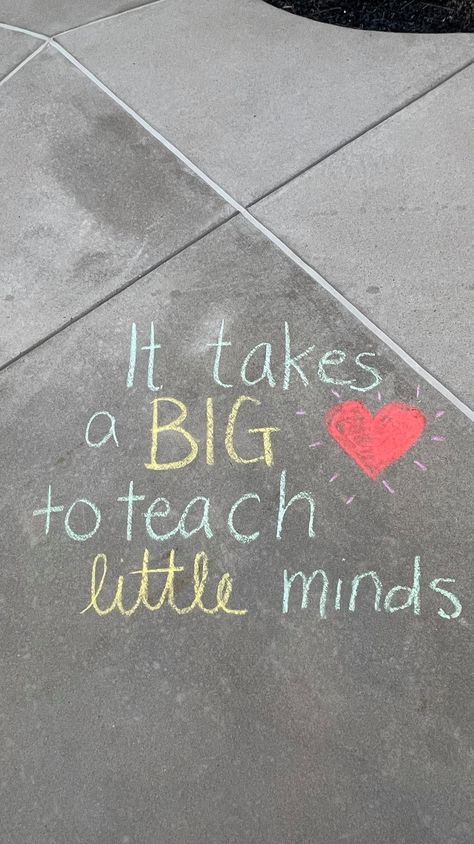 It takes
a BIG
to teach
little minds